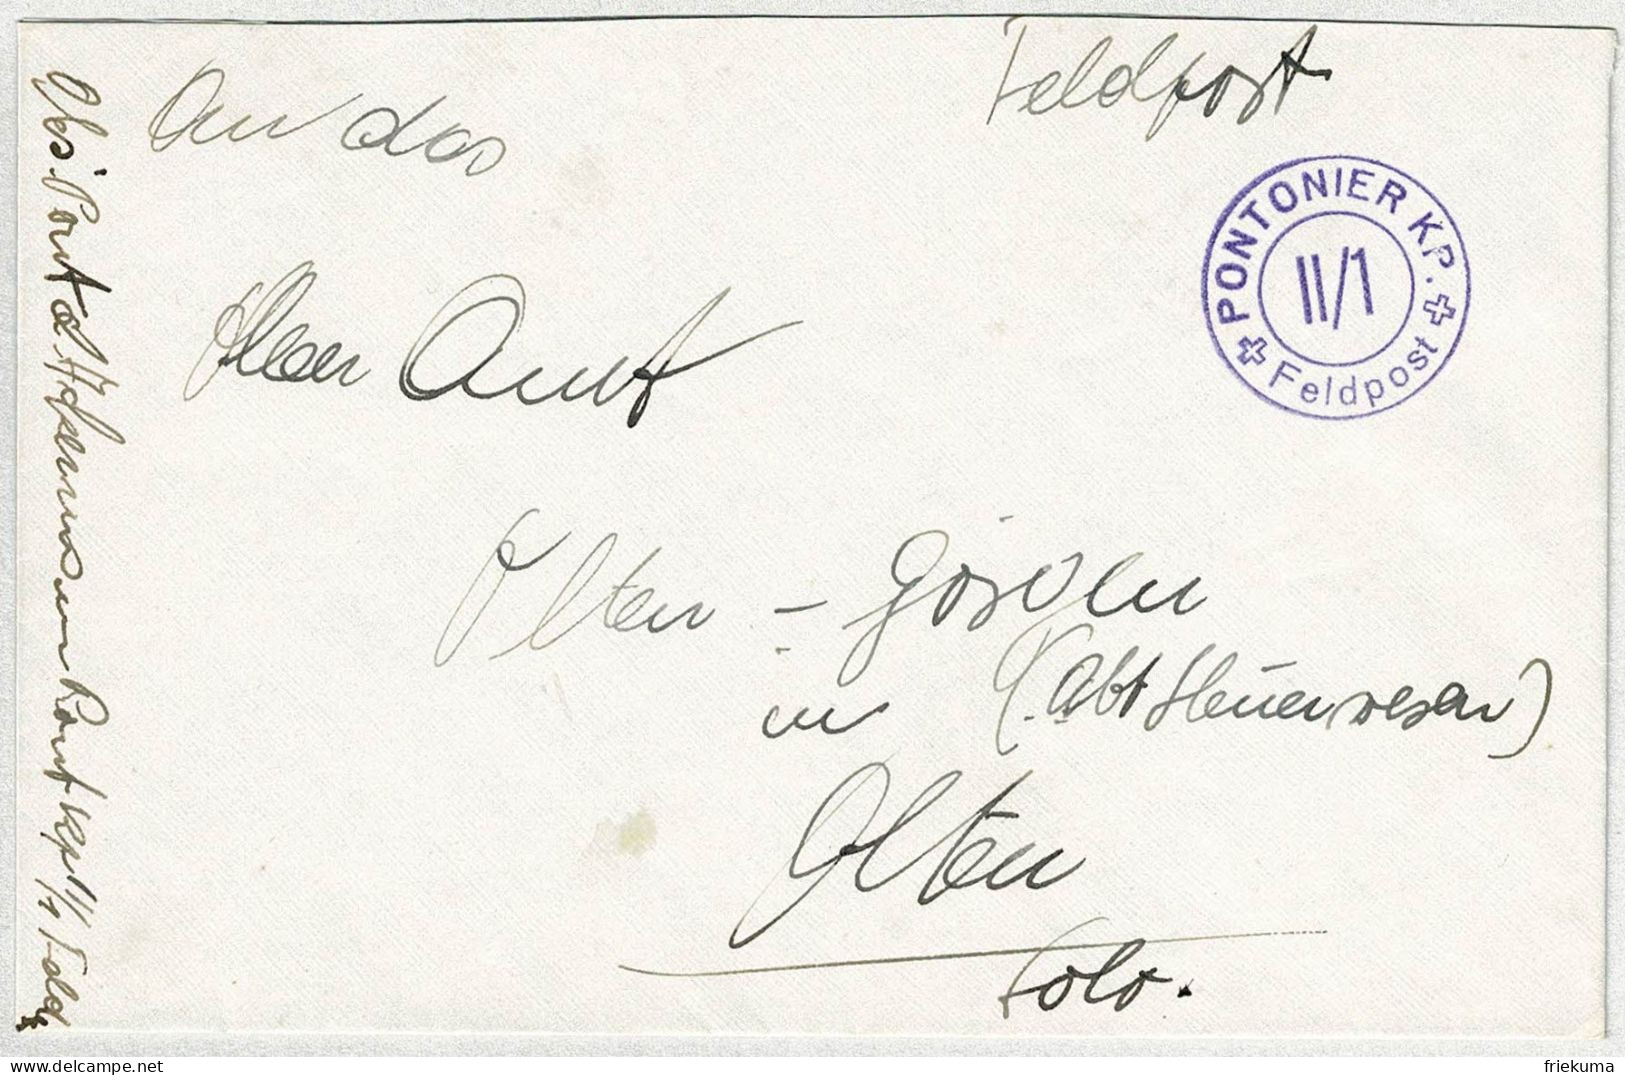 Feldpost
An das
PONTONIER KP.
II/1
Feldpost
Amt
Olten - Gösgen
in (Abt Steuerwesen)
Olten
Solo.
Pont Kp II/1 Feld
delcampe.net
friekuma